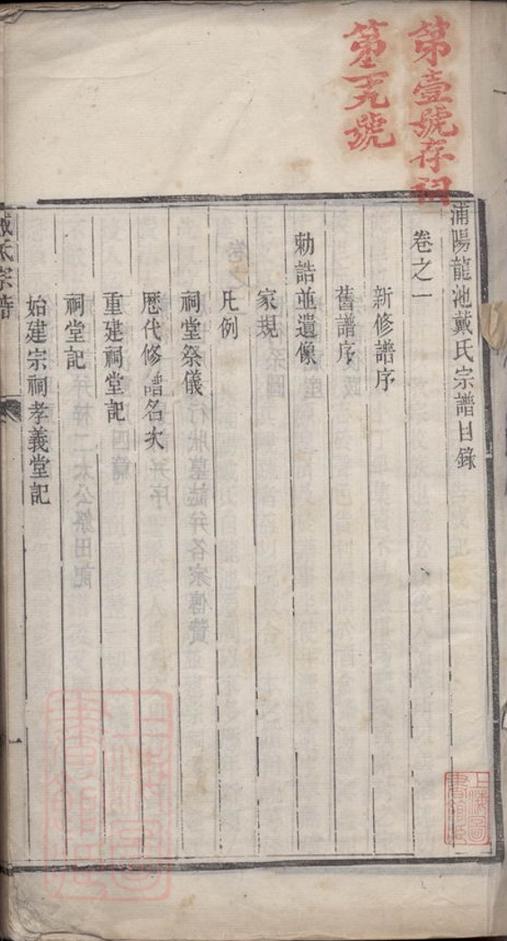 第壹號存祠
第一百九號
浦陽龍池戴氏宗譜目錄
卷之一
新修譜序
舊譜序
勅誥並遺像
家規
凡例
祠堂祭儀
歷代修譜名次
重建祠堂記
祠堂記
始建宗祠孝義堂記
戴氏宗譜
一
上海圖書館藏